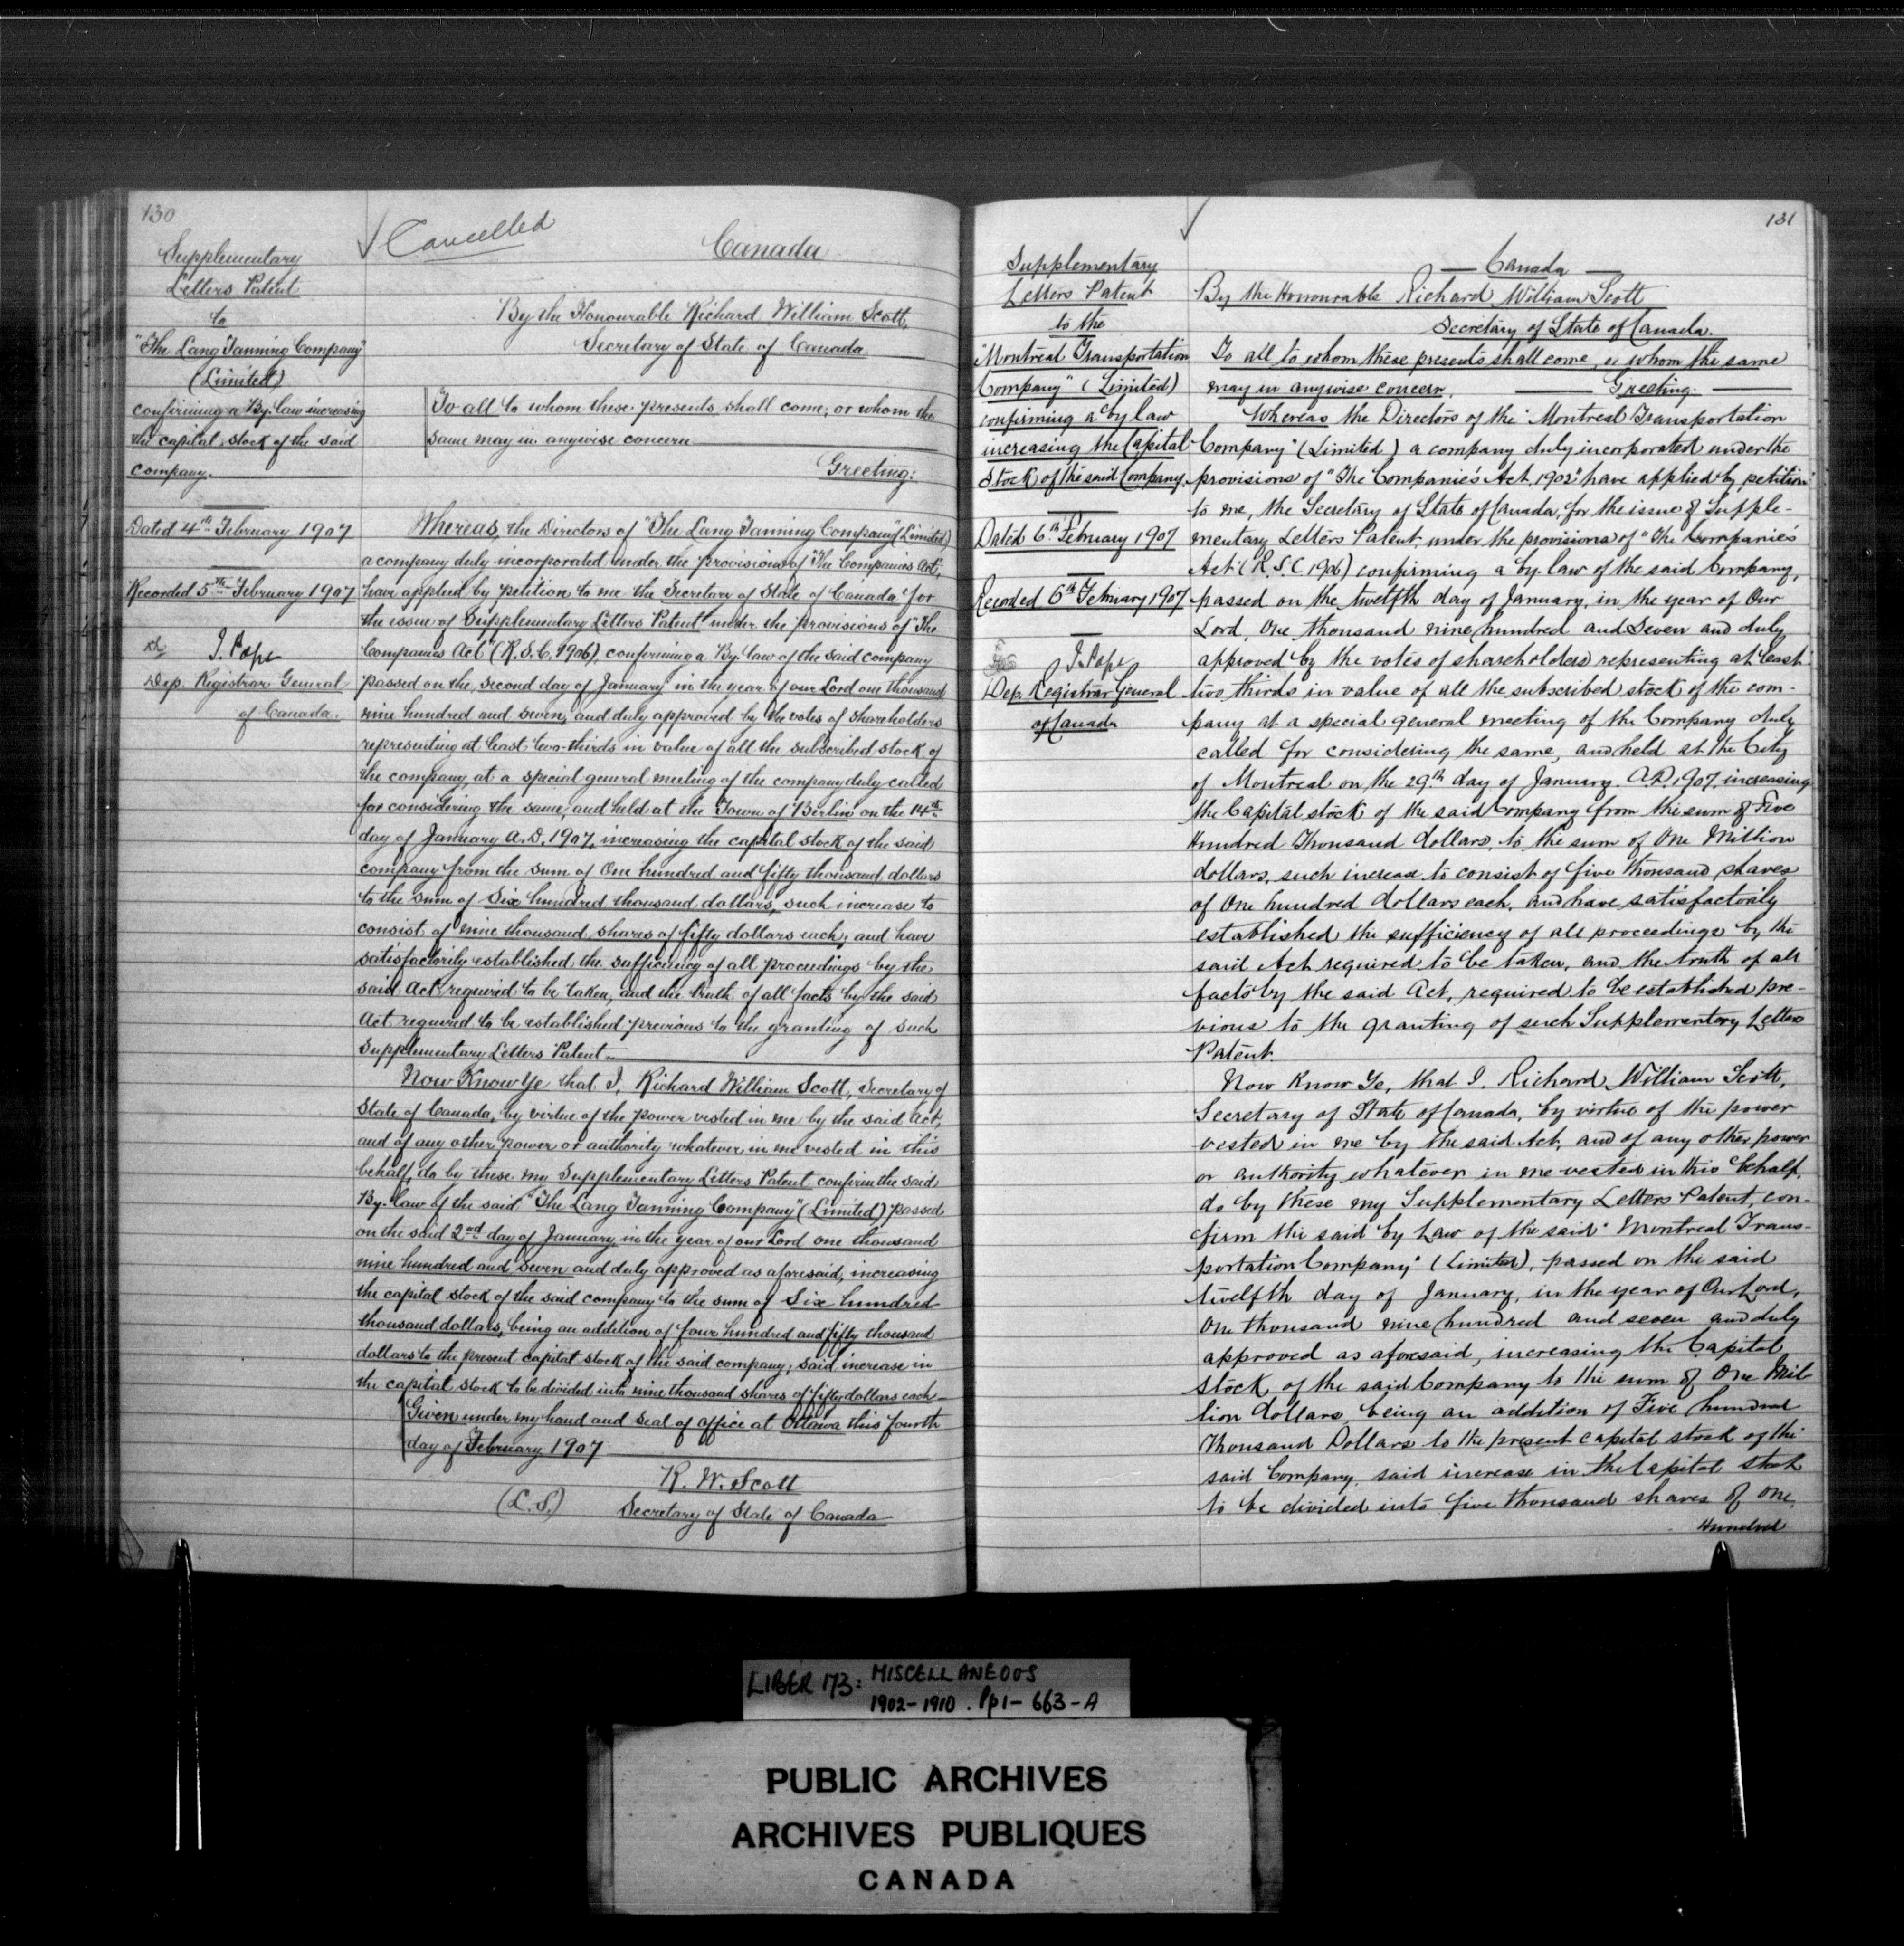 130
Cancelled
Supplementary
Letters Patent
to
"The Lang Tanning Company"
(Limited)
confirming a By-law increasing
the capital stock of the said
company.
Dated 4th February 1907
Recorded 5th February 1907
J. Pope
Dep. Registrar General
of Canada.
Canada
By the Honourable Richard William Scott,
Secretary of State of Canada
To all to whom these presents shall come, or whom the
same may in anywise concern
Greeting:
Whereas, the Directors of "The Lang Tanning Company" (Limited)
a company duly incorporated under the provisions of "The Companies Act",
have applied by petition to me the Secretary of State of Canada for
the issue of Supplementary Letters Patent under the provisions of "The
Companies Act" (R.S.C. 1906), confirming a By-law of the said company
passed on the second day of January in the year of our Lord one thousand
nine hundred and seven, and duly approved by the votes of shareholders
representing at least two-thirds in value of all the subscribed stock of
the company, at a special general meeting of the company duly called
for considering the same, and held at the Town of Berlin on the 14th
day of January A.D. 1907, increasing the capital stock of the said
company from the sum of One hundred and fifty thousand dollars
to the sum of Six hundred thousand dollars, such increase to
consist of nine thousand shares of fifty dollars each, and have
satisfactorily established the sufficiency of all proceedings by the
said Act required to be taken, and the truth of all facts by the said
Act required to be established previous to the granting of such
Supplementary Letters Patent.
Now Know Ye that I, Richard William Scott, Secretary of
State of Canada, by virtue of the power vested in me by the said Act,
and of any other power or authority whatever in me vested in this
behalf, do by these my Supplementary Letters Patent confirm the said
By-law of the said "The Lang Tanning Company" (Limited) passed
on the said 2nd day of January, in the year of our Lord one thousand
nine hundred and seven and duly approved as aforesaid, increasing
the capital stock of the said company to the sum of Six hundred
thousand dollars, being an addition of four hundred and fifty thousand
dollars to the present capital stock of the said company; said increase in
the capital stock to be divided into nine thousand shares of fifty dollars each
Given under my hand and seal of office at Ottawa this fourth
day of February 1907
R. W. Scott
(L.S.) Secretary of State of Canada
131
Supplementary
Letters Patent
to the
"Montreal Transportation
Company" (Limited)
confirming a by law
increasing the Capital
Stock of the said Company.
Dated 6th February 1907
Recorded 6th February 1907
J. Pope
Dep. Registrar General
of Canada
Canada
By the Honourable Richard William Scott
Secretary of State of Canada.
To all to whom these presents shall come, or whom the same
may in anywise concern, Greeting:
Whereas the Directors of the "Montreal Transportation
Company" (Limited) a company duly incorporated under the
provisions of "The Companie's Act, 1902" have applied by petition
to me, the Secretary of State of Canada, for the issue of Supple-
mentary Letters Patent, under the provisions of "The Companie's
Act" (R.S.C. 1906) confirming a by-law of the said Company,
passed on the twelfth day of January, in the year of Our
Lord, One thousand nine hundred and Seven and duly
approved by the votes of shareholders representing at least
two thirds in value of all the subscribed stock of the com-
pany at a special general meeting of the Company duly
called for considering the same, and held at the City
of Montreal on the 29th day of January. A.D. 1907, increasing
the Capital stock of the said Company from the sum of Five
Hundred Thousand dollars, to the sum of One Million
dollars, such increase to consist of five thousand shares
of One hundred dollars each, and have satisfactorily
established the sufficiency of all proceedings by the
said Act required to be taken, and the truth of all
facts by the said Act, required to be established pre-
vious to the granting of such Supplementary Letters
Patent.
Now Know Ye, that I, Richard William Scott,
Secretary of State of Canada, by virtue of the power
vested in me by the said Act, and of any other power
or authority whatever in me vested in this behalf,
do by these my Supplementary Letters Patent, con-
firm the said by Law of the said "Montreal Trans-
portation Company" (Limited), passed on the said
twelfth day of January, in the year of Our Lord,
One thousand nine hundred and seven and duly
approved as aforesaid, increasing the Capital
stock of the said Company to the sum of One Mil-
lion dollars being an addition of Five hundred
Thousand Dollars to the present capital stock of the
said Company, said increase in the Capital stock
to be divided into five thousand shares of one
Hundred
LIBER 173: MISCELLANEOUS
1902-1910. Pp 1-663-A
PUBLIC ARCHIVES
ARCHIVES PUBLIQUES
CANADA